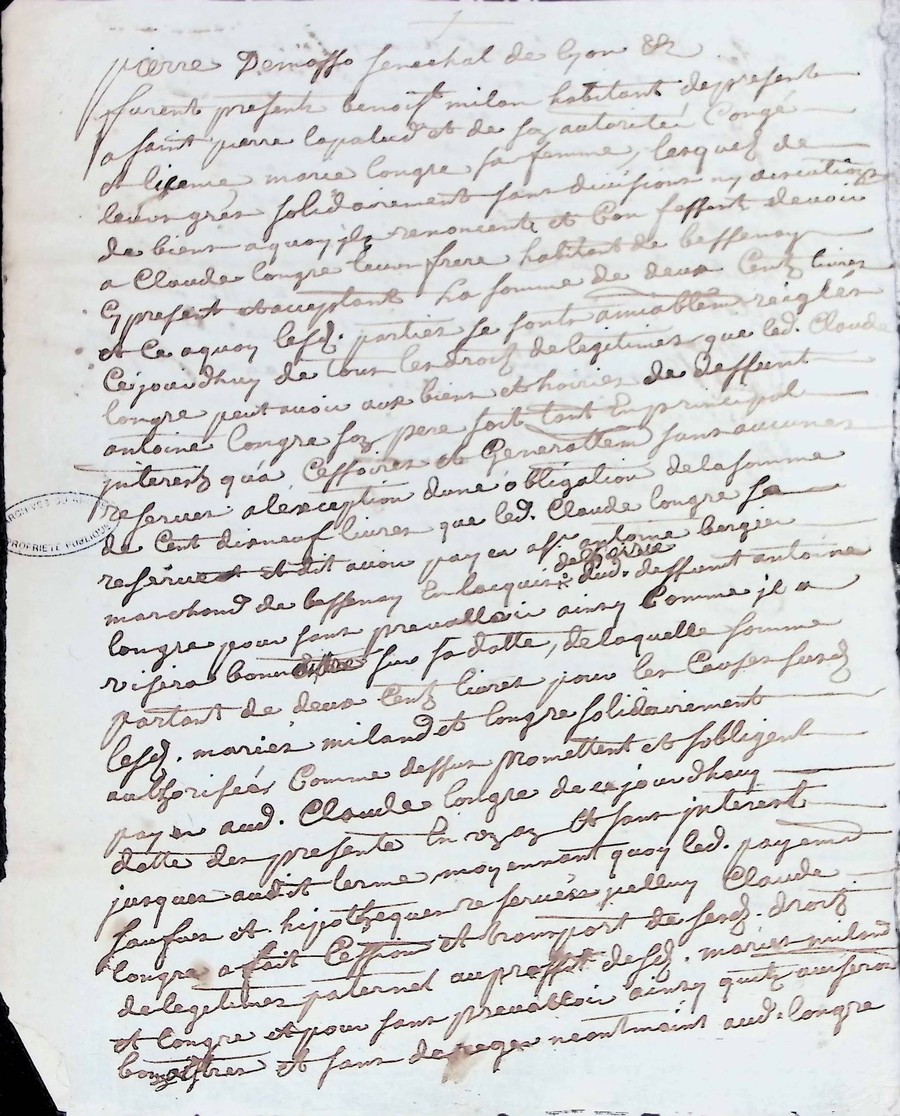 pierre Demosso senechal de lyon &&
furent presents benoist milan habitant de present
a saint pierre lapalud et de son authorité Congé
et lisence marie longre sa femme, lesquels de
leurs gres solidairement sans divisions ny discutions
de biens a quoy ils renoncent et Con fessent devoir
a Claude longre leur frere habitant de bessenay
Cy present et acceptant La somme de deux Centz livres
et ce a quoy lesd. parties se sonts amiablem reiglés
Cejourdhuy de tous les droitz de legitimes que led. Claude
longre peut avoir aux biens et hoiries de deffunt
antoine longre son pere soit tant En principal
interestz qu'a Cessoires et Generallem sans aucunes
reserves a lexception dune obligation de la somme
de Cent dixneuf livres que led. Claude longre se
reserve et dit avoir payé a sr. antoine bergier
marchand de bessenay En lacquit dud. deffunt antoine
longre pour sans prevalloir ainsy Comme il a
visera bon sur sa datte, de laquelle somme
partant de deux Centz livres pour les Causes susd
lesd. mariés miland et longre solidairement
authorisées Comme dessus promettent et sobligent
payer aud. Claude longre de cejourdhuy
datte des presente En et sans interest
jusques audit terme moyennant quoy led. payem
saufves et hipotheques reservées jcelluy Claude
longre a fait Cession et transport de sesd. droitz
de legitimes paternel au proffit desd. mariés miland
et longre et pour sans prevalloir ainsy quilz aviseron
bon et sans deroger neantmoint aud. longre
ARCHIVES DU RHÔNE
PROPRIÉTÉ PUBLIQUE